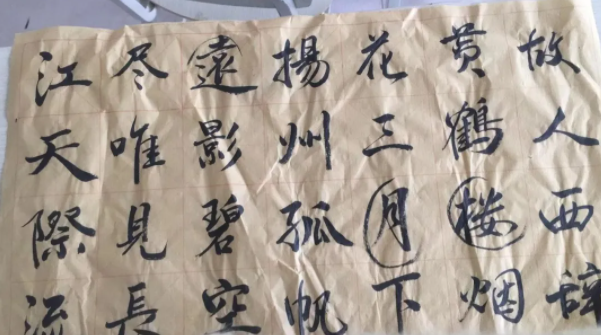 故人西辞
黄鹤楼烟
花三月下
揚州孤帆
遠影碧空
尽唯見長
江天際流